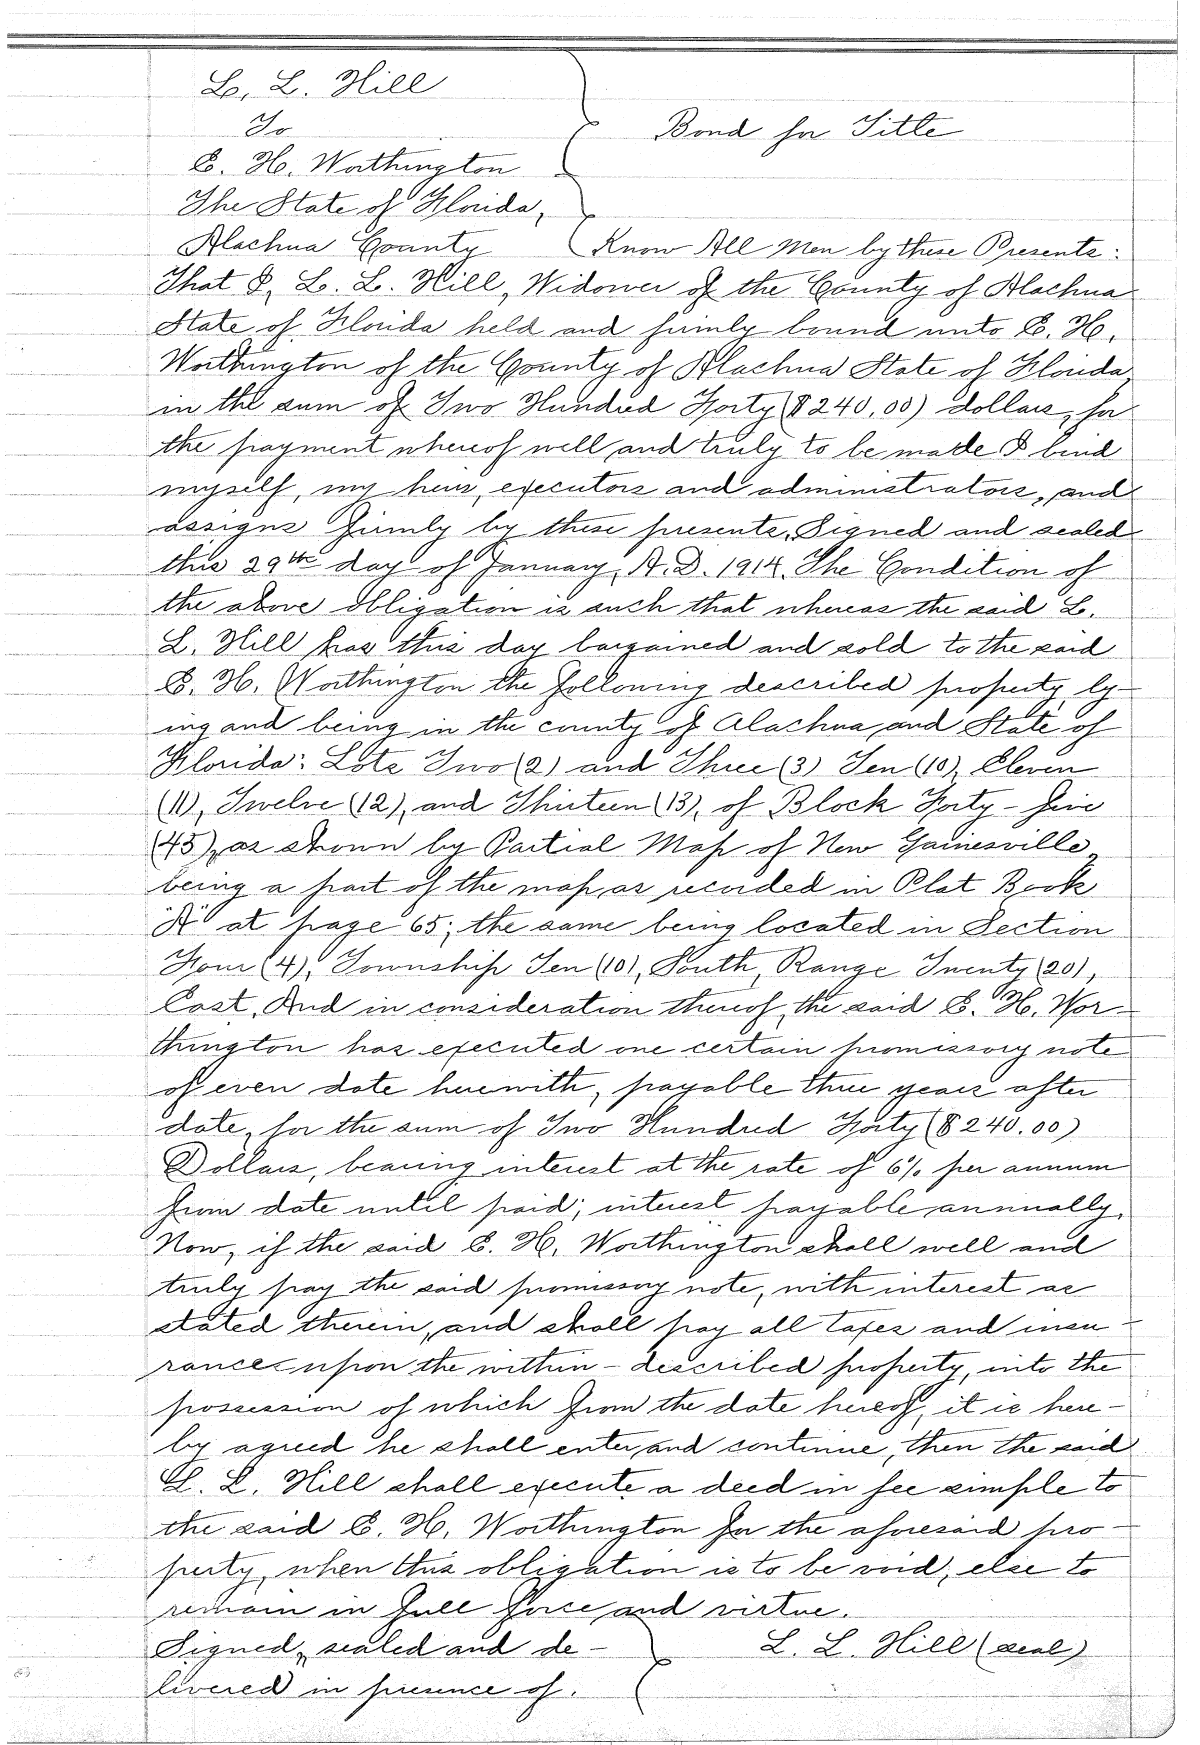 L. L. Hill
To
Bond for Title
E. H. Worthington
The State of Florida,
Alachua County Know All Men by these Presents:
That I, L. L. Hill, Widower of the County of Alachua
State of Florida held and firmly bound unto E. H.
Worthington of the County of Alachua State of Florida,
in the sum of Two Hundred Forty ($240.00) dollars, for
the payment whereof well and truly to be made I bind
myself, my heirs, executors and administrators, and
assigns firmly by these presents. Signed and sealed
this 29th day of January, A.D. 1914. The Condition of
the above obligation is such that whereas the said L.
L. Hill has this day bargained and sold to the said
E. H. Worthington the following described property, ly-
ing and being in the county of Alachua, and State of
Florida: Lots Two (2) and Three (3) Ten (10), Eleven
(11), Twelve (12), and Thirteen (13), of Block Forty-five
(45), as shown by Partial Map of New Gainesville,
being a part of the map, as recorded in Plat Book
"A" at page 65; the same being located in Section
Four (4), Township Ten (10), South, Range Twenty (20),
East. And in consideration thereof, the said E. H. Wor-
thington has executed one certain promissory note
of even date herewith, payable three years after
date, for the sum of Two Hundred Forty ($240.00)
Dollars, bearing interest at the rate of 6% per annum
from date until paid; interest payable annually.
Now, if the said E. H. Worthington shall well and
truly pay the said promissory note, with interest as
stated therein, and shall pay all taxes and insu-
rances upon the within-described property, into the
possession of which from the date hereof, it is here-
by agreed he shall enter, and continue, then the said
L. L. Hill shall execute a deed in fee simple to
the said E. H. Worthington for the aforesaid pro-
perty, when this obligation is to be void, else to
remain in full force, and virtue.
Signed, sealed and de- L. L. Hill (seal)
livered in presence of.